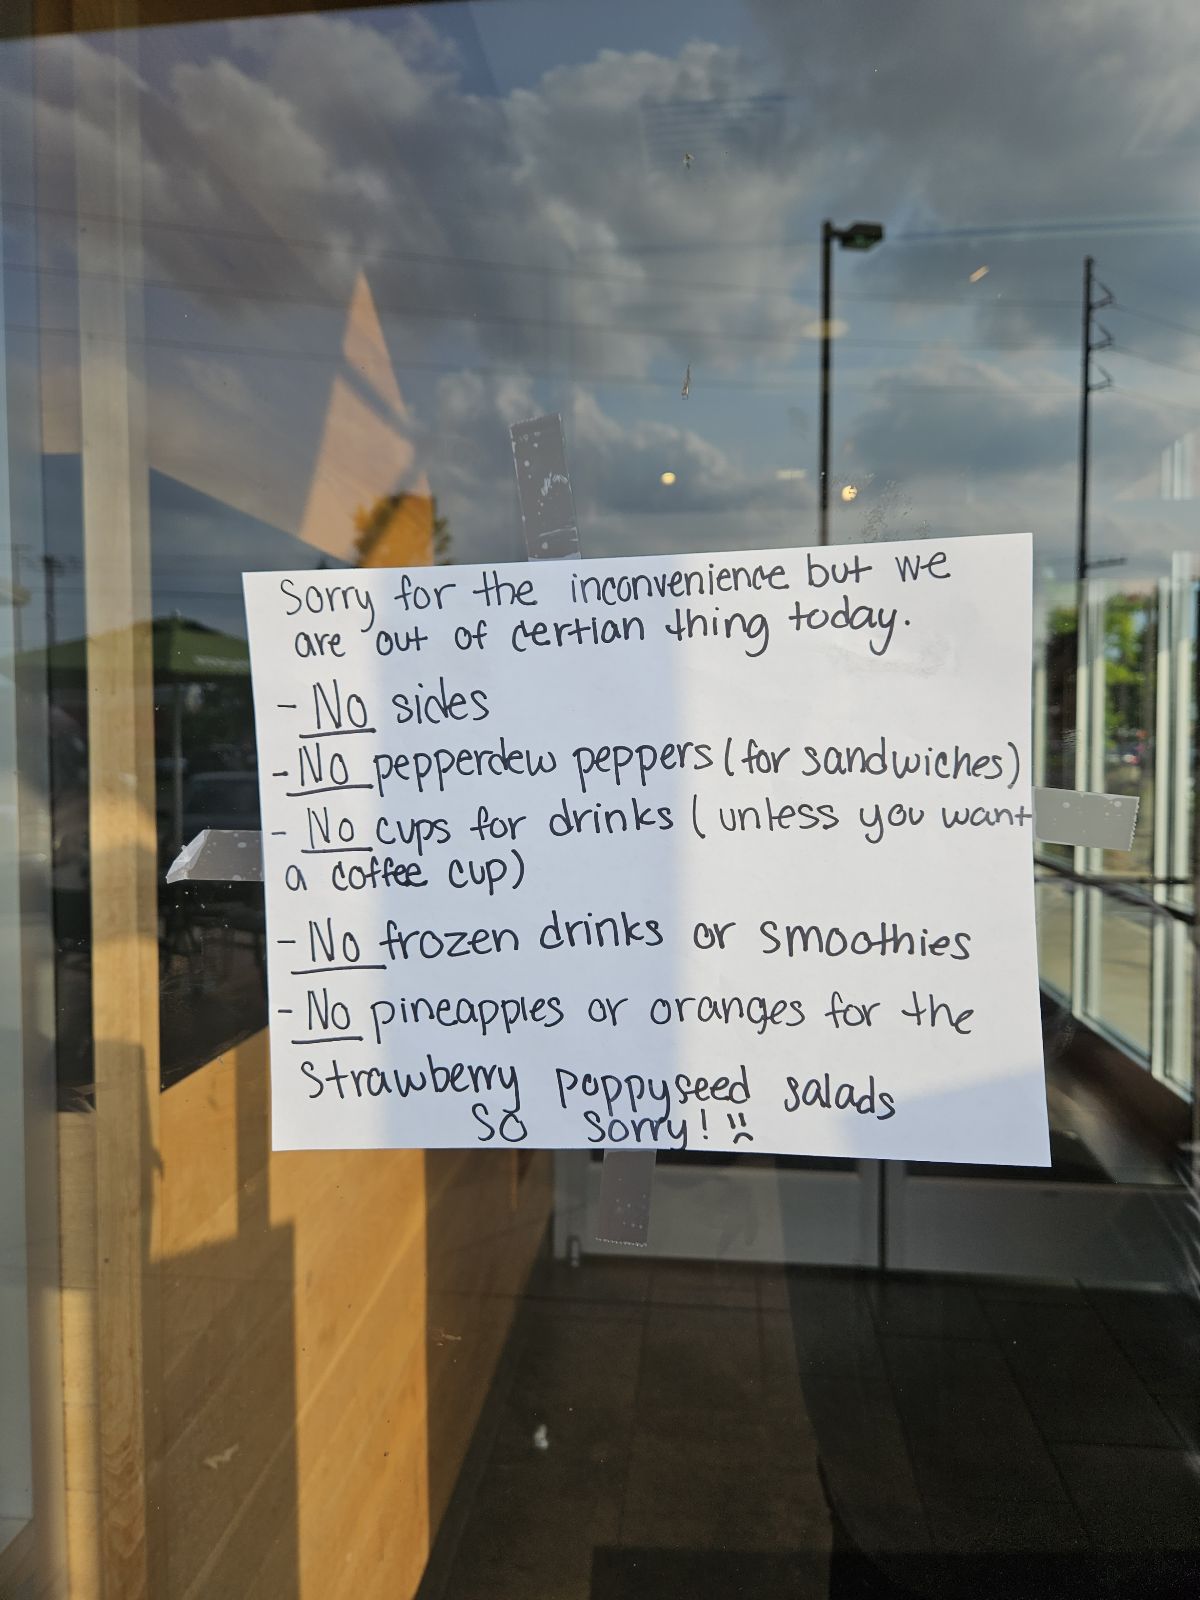 Sorry for the inconvenience but we
are out of certian thing today.
- No sides
- No pepperdew peppers (for sandwiches)
- No cups for drinks (unless you want
a coffee cup)
- No frozen drinks or smoothies
- No pineapples or oranges for the
Strawberry poppyseed salads
So sorry! :(